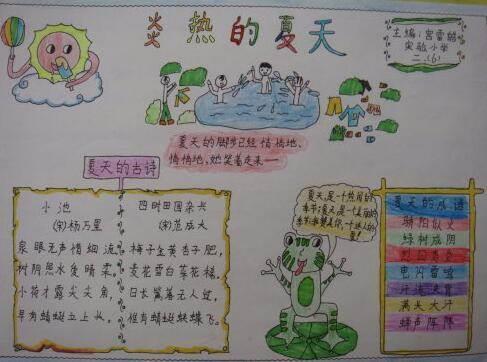 炎热的夏天
主编:宫雷皓
实验小学
二.(6)
夏天的脚步已经悄悄地、
悄悄地,她笑着走来一
夏天的古诗
小池
(宋)杨万里
泉眼无声惜细流
树阴照水
小荷才露尖尖角,
早有蜻蜓立上头。
四时田园杂兴
(宋)范成大
梅子金黄杏子肥,
麦花雪白菜花稀。
日长篱落无人过,
惟有蜻蜓蛱蝶飞。
夏天,是一个热闹的
季节;夏天,是一个美丽的
夏天的成语
骄阳似火
绿树成阴
烈日
电闪雷鸣
满头大汗
蝉声阵阵